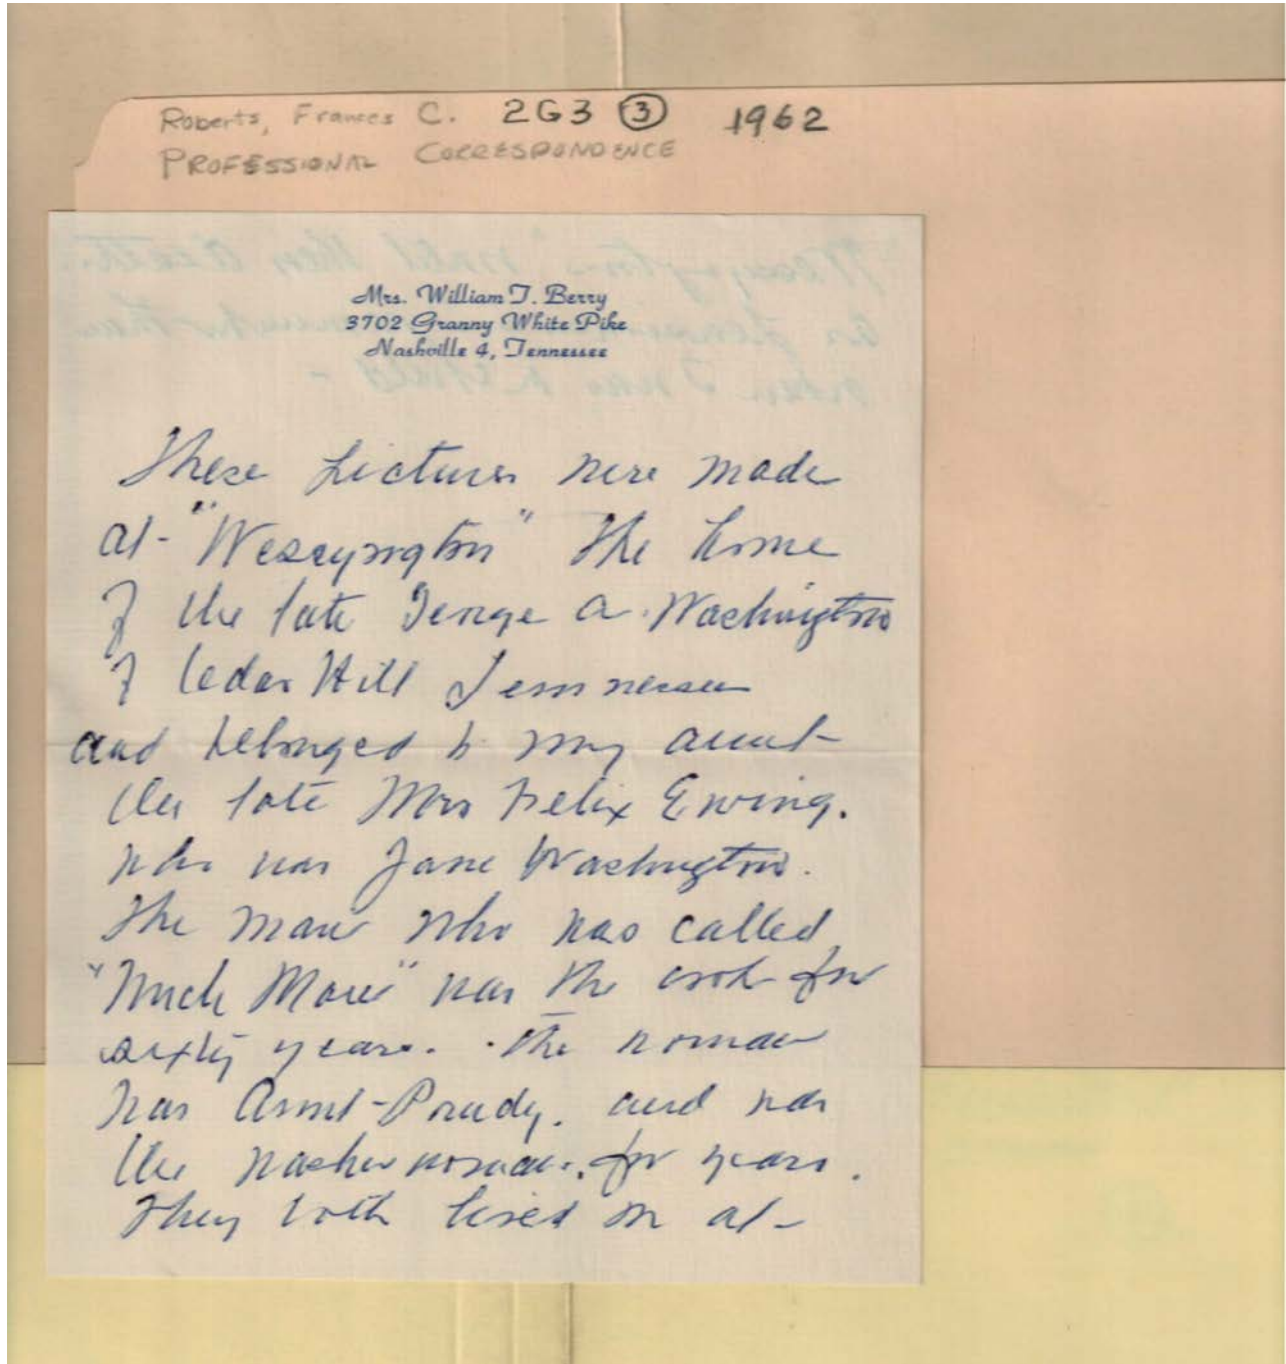 Roberts, Frances C. 2G3 ③ 1962
PROFESSIONAL CORRESPONDENCE
Mrs. William T. Berry
3702 Granny White Pike
Nashville 4, Tennessee
These pictures were made
at "Wessyngton" the home
of the late George A. Washington
of Cedar Hill Tennessee
and belonged to my aunt
the late Mrs Felix Ewing.
who was Jane Washington.
The man who was called
"Uncle" was the cook for
sixty years. The woman
was Aunt and was
the washerwoman, for years.
They both lived on at